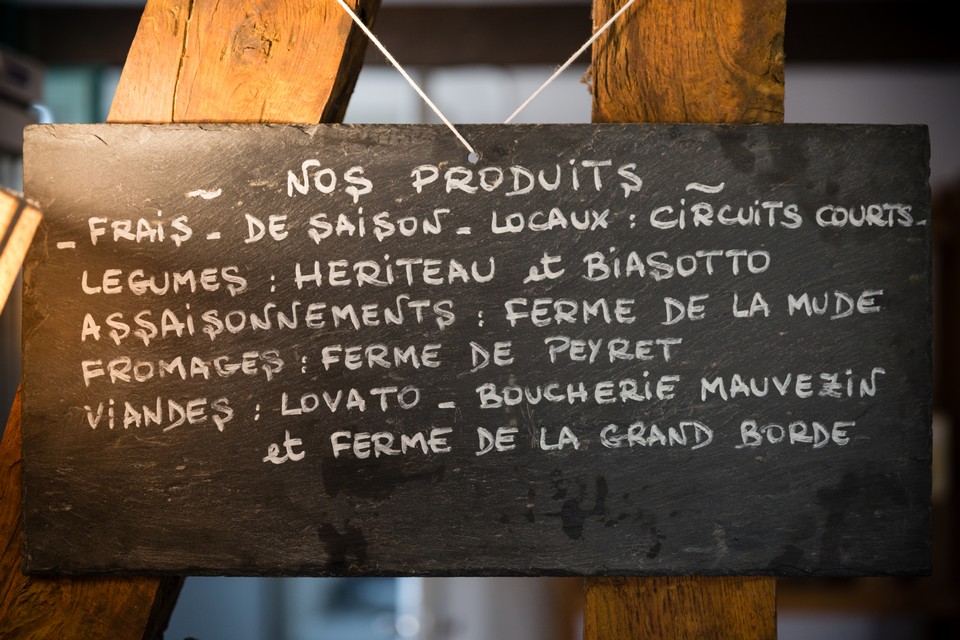 ~ NOS PRODUITS ~
- FRAIS - DE SAISON - LOCAUX : CIRCUITS COURTS -
LEGUMES : HERITEAU et BIASOTTO
ASSAISONNEMENTS : FERME DE LA MUDE
FROMAGES : FERME DE PEYRET
VIANDES : LOVATO - BOUCHERIE MAUVEZIN
et FERME DE LA GRAND BORDE